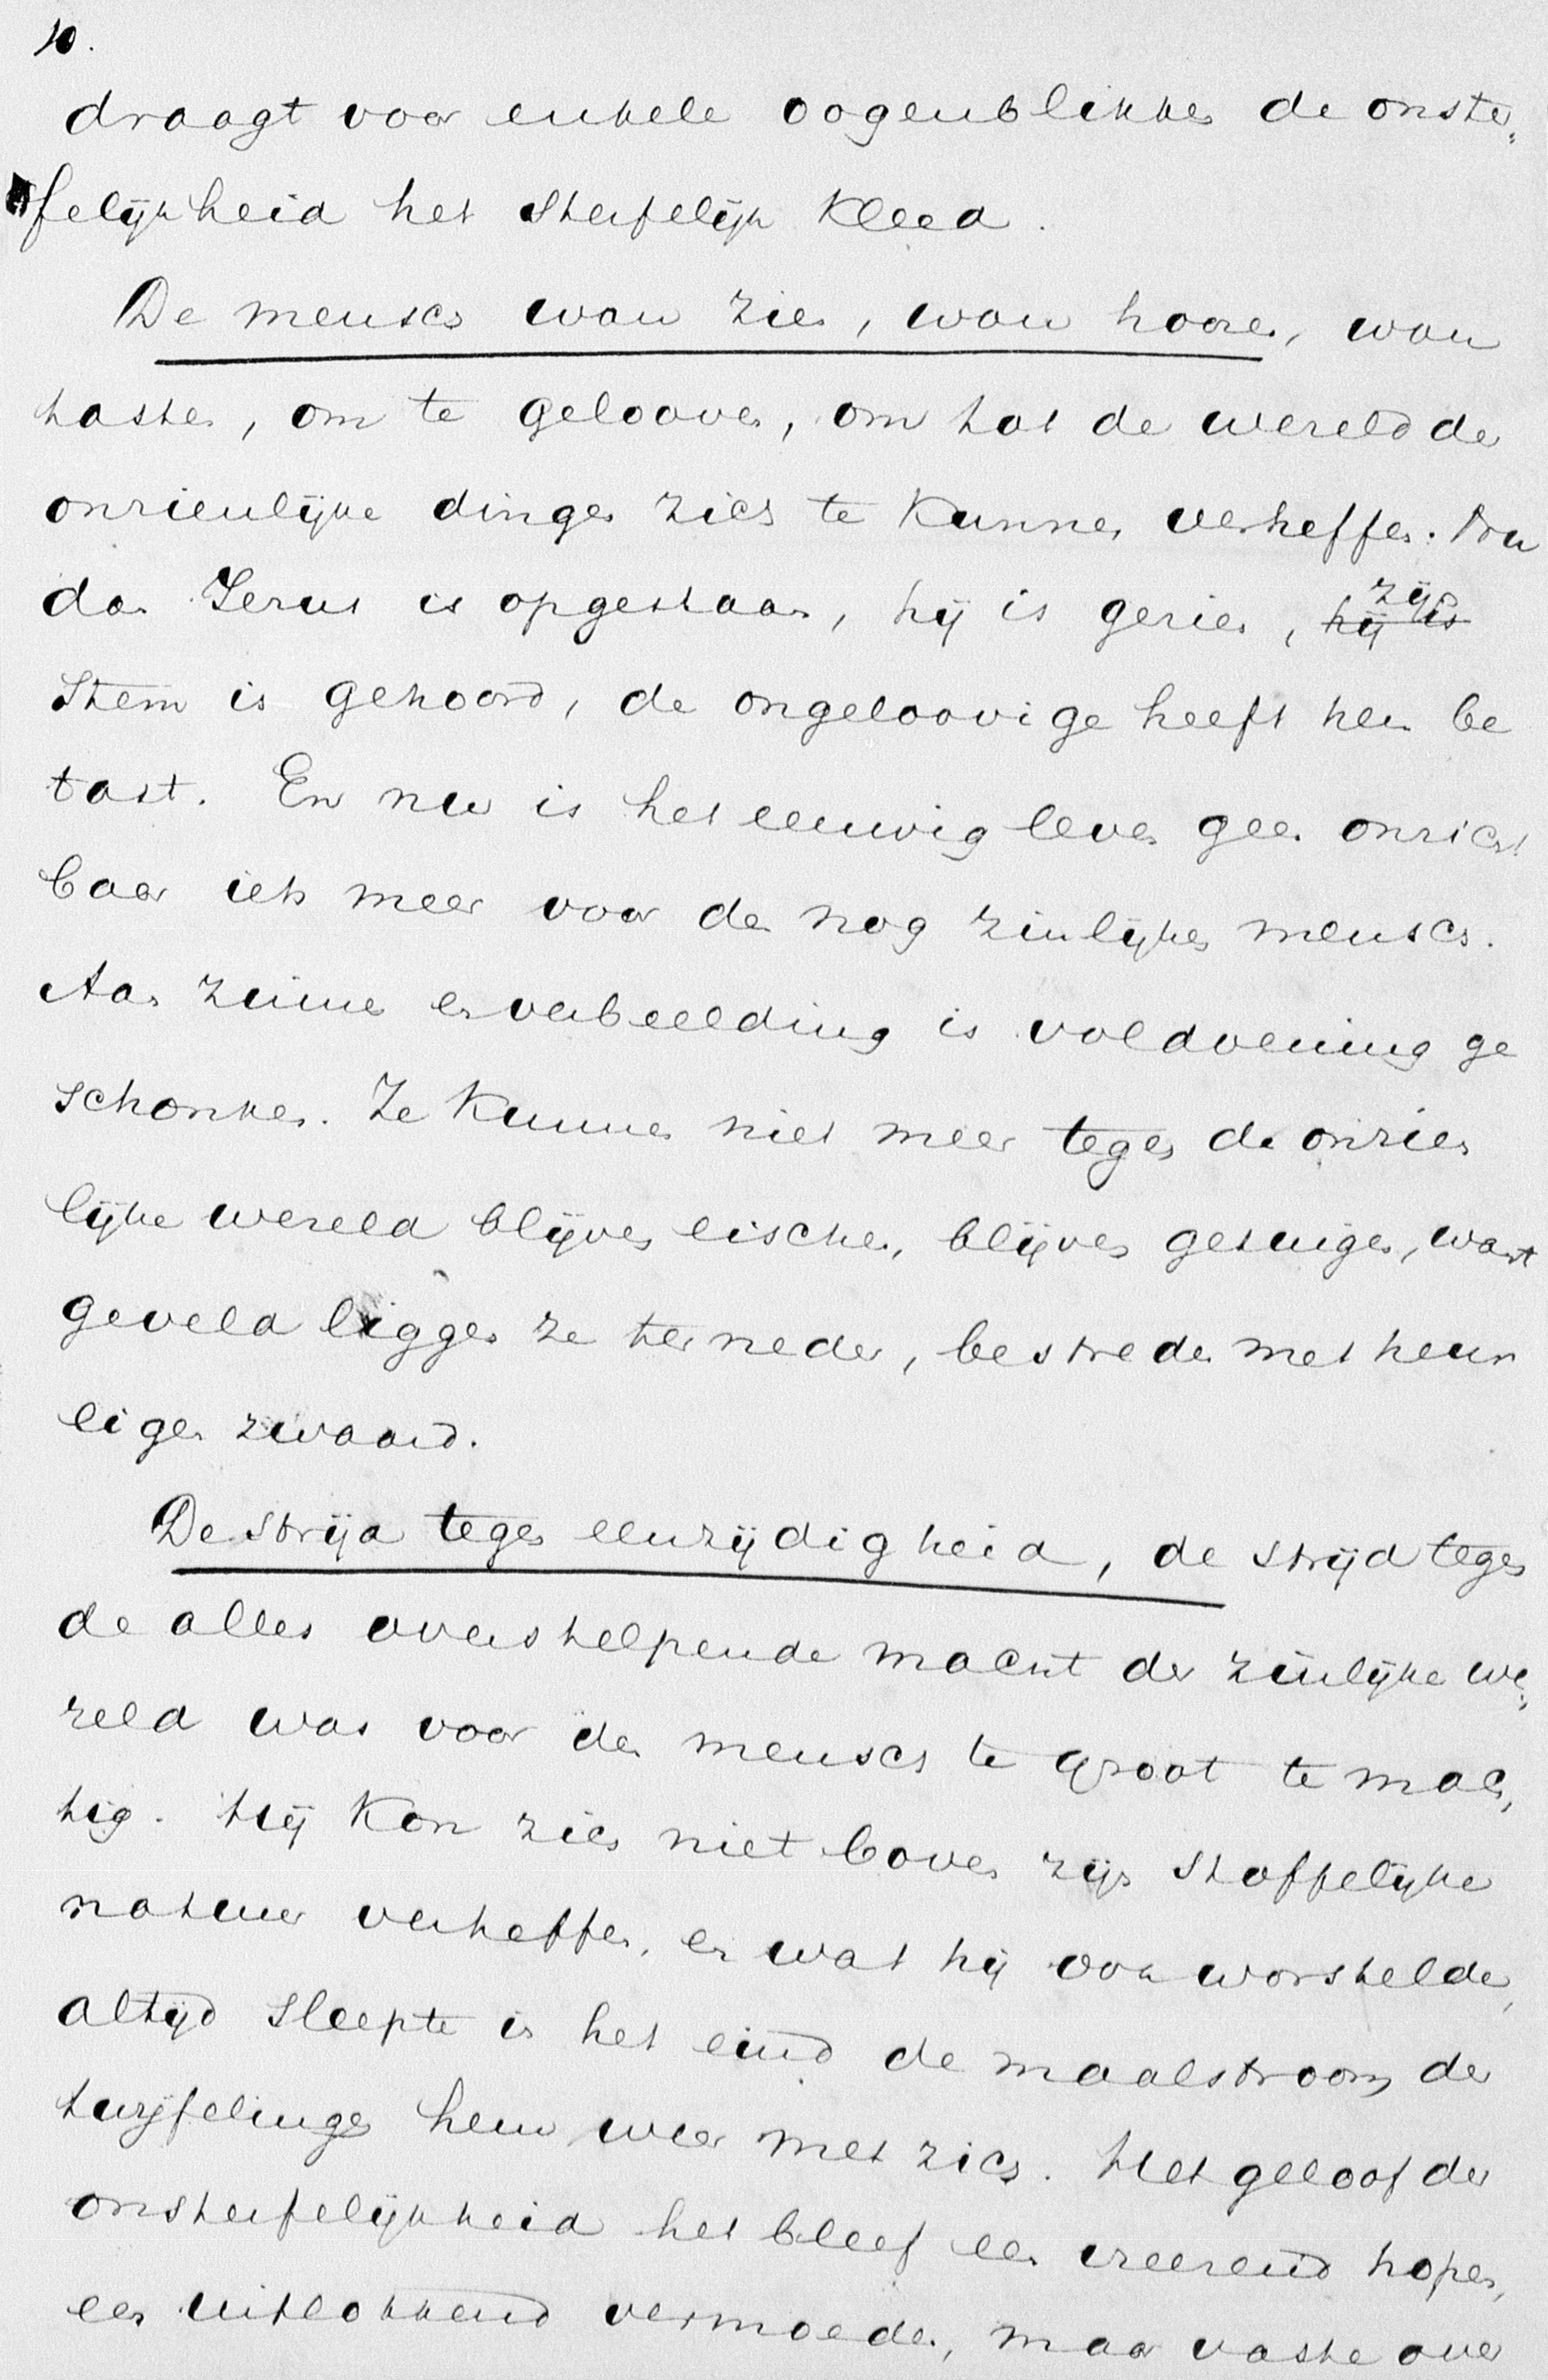 10.
draagt voor enkele oogenblikken de onster„
felijkheid het sterfelijk kleed.
De mensch wou zien, wou hooren, wou
tasten, om te gelooven, om tot de wereld der
onzienlijke dingen zich te kunnen verheffen. Nu
dan Jezus is opgestaan, hij is gezien, hij is zijn
stem is gehoord, de ongeloovige heeft hem be
tast. En nu is het eeuwig leven geen onzicht
baar iets meer voor den nog zinlijken mensch.
Aan zinnen en verbeelding is voldoening ge
schonken. Ze kunnen niet meer tegen de onzien
lijke wereld blijven eischen, blijven getuigen, want
geveld liggen ze ter neder, bestreden met heur
eigen zwaard.
De strijd tegen eenzijdigheid, de strijd tegen
de alles overstelpende macht der zinlijke we„
reld was voor den mensch te groot te mach„
tig. Hij kon zich niet boven zijn stoffelijke
natuur verheffen, en wat hij ook worstelde,
altijd sleepte in het eind de maalstroom der
twijfelingen hem weer met zich. Het geloof der
onsterfelijkheid het bleef een vreezend hopen,
een uitlokkend vermoeden, maar vaste over